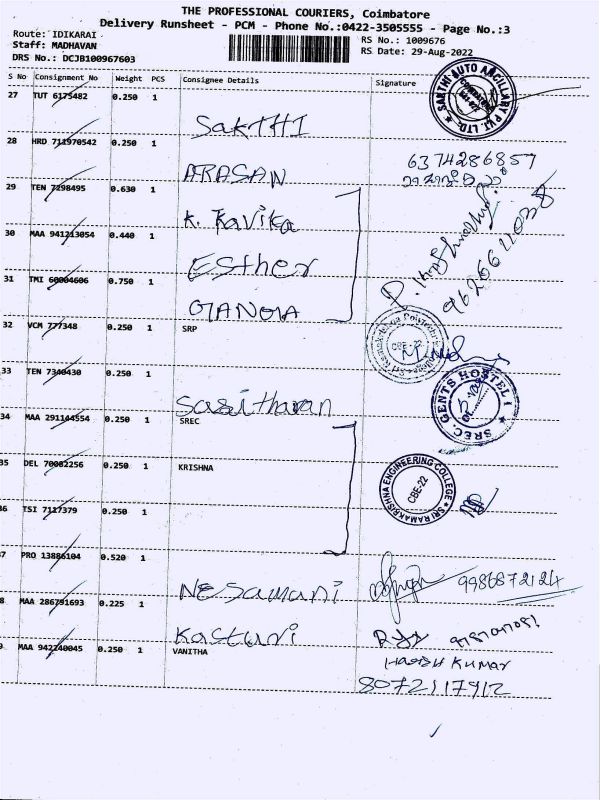 THE PROFESSIONAL COURIERS, Coimbatore
Delivery Runsheet - PCM - Phone No.:0422-3505555 - Page No.:3
Route: IDIKARAI
RS No.: 1009676
Staff: MADHAVAN
RS Date: 29-Aug-2022
DRS No.: DCJB100967603
S No Consignment No Weight PCS Consignee Details Signature
27 TUT 6175482 0.250 1 SAKTHI
SAKTHI AUTO ANCILLARY PVT. LTD.
28 HRD 711970542 0.250 1 ARASAN 6374286857
29 TEN 7298495 0.630 1 K. Kavika
30 MAA 941213054 0.440 1 Esther
31 TMI 60004606 0.750 1 GANGA
32 VCM 777348 0.250 1 SRP
CBE-22
33 TEN 7340430 0.250 1 Sasitharan
SREC. GENTS HOSTEL 1
34 MAA 291144554 0.250 1 SREC
35 DEL 70082256 0.250 1 KRISHNA
SRI RAMAKRISHNA ENGINEERING COLLEGE
CBE-22
36 TSI 7117379 0.250 1
37 PRO 13886104 0.520 1 NESAMANI 9986872124
38 MAA 286791693 0.225 1 Kasturi
39 MAA 942240045 0.250 1 VANITHA
HARISH KUMAR
8072117912